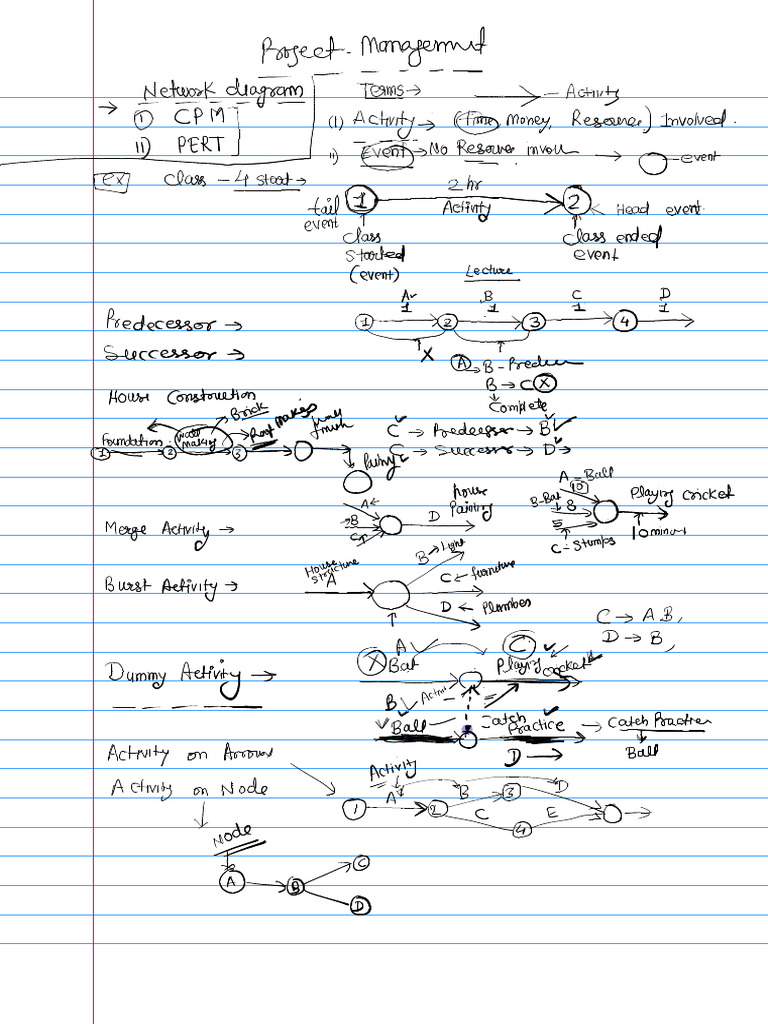 Project - Management
Network diagram
I) CPM
II) PERT
Terms →
→ Activity
(I) Activity → (Time, Money, Resource) Involved.
II) Event → No Resource involve → event
ex Class - 4 start →
tail event
1
2 hr
Activity
2
Head event
class started (event)
class ended event
Lecture
A 1
B 1
C 1
D 1
1 2 3 4
Predecessor →
Successor →
X
A → B - 
B → C X
Complete
House Construction
Brick
Foundation
making
Roof
finish
1 2 3
C → Predecessor → B
C → Successor → D
Merge Activity →
A
B
C
D
House Painting
A - Ball
10
B - Bat
8
5
C - Stumps
Playing cricket
10 minut
Burst Activity →
House structure
A
B → Light
C ← furniture
D ← Plumber
C → A B,
D → B,
Dummy Activity →
A
X Bat
C
Playing cricket
B
Ball
Catch Practice → Catch Practice
D →
Ball
Activity on Arrow
Activity on Node
Activity
A B D
C E
1 2 3 4
Node
A B C D